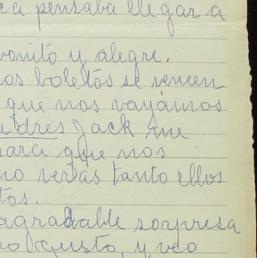 ca pensaba llegar a
bonito y alegre.
os boletos se vencen
que nos vayamos
adres Jack me
para que nos
no verlas tanto ellos
tos.
agradable sorpresa
gusto, y veo